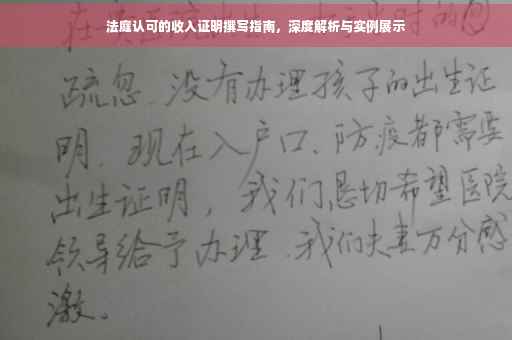 法庭认可的收入证明撰写指南，深度解析与实例展示
疏忽、没有办理孩子的出生证
明、现在入户口、防疫都需要
出生证明，我们恳切希望医院
领导给予办理、我们夫妻万分感
激。